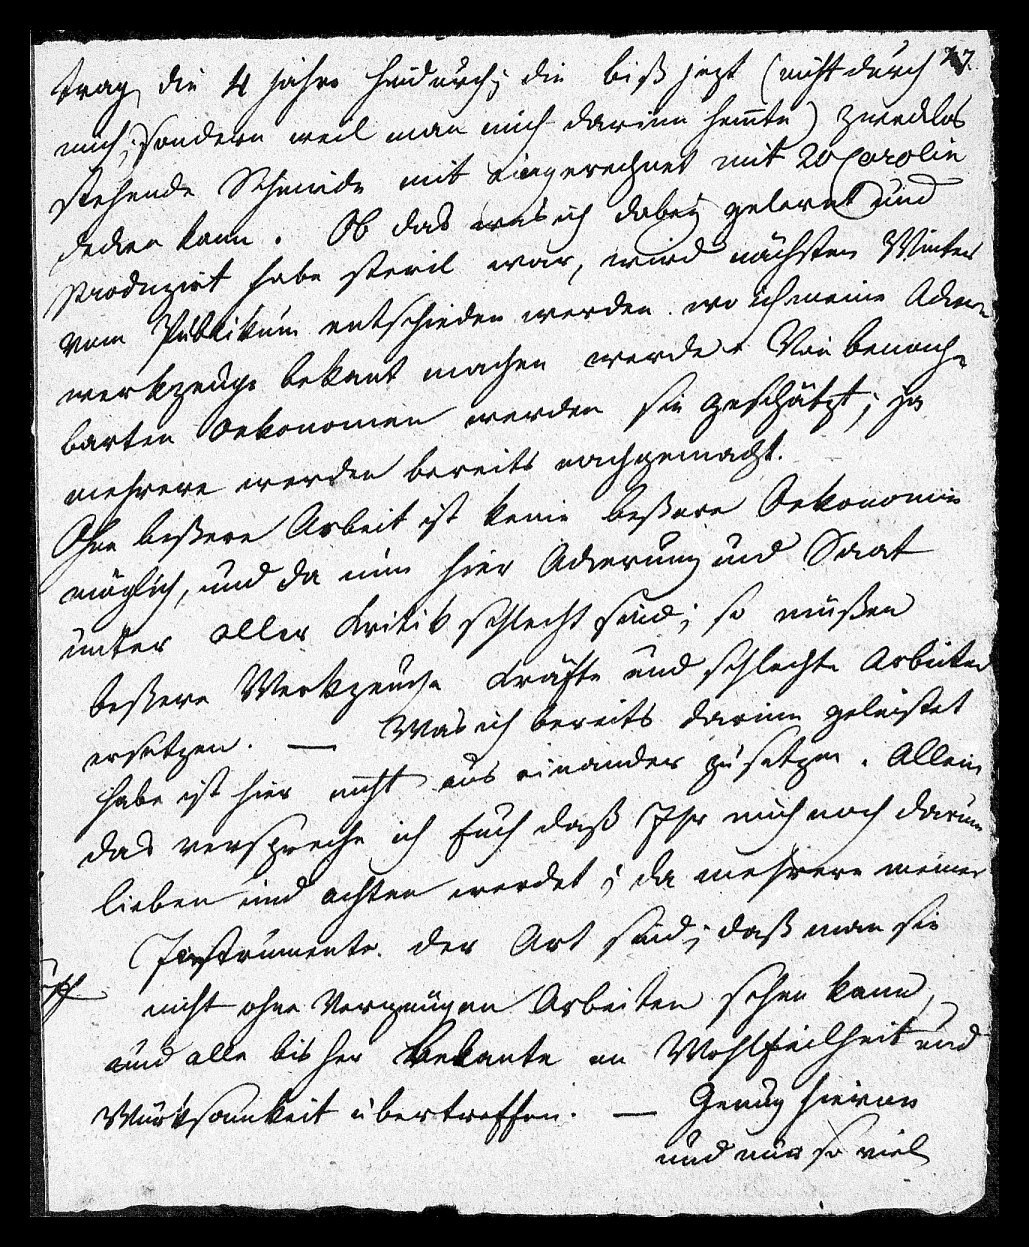 27.
trag die 4 Jahre hindurch; die biß jezt (nicht durch
mich; sondern weil man mich darinn hemte) zwecklos
stehende Schmide mit eingerechnet mit 20 Carolin
decken kann. Ob das was ich dabey gelernt und
produzirt habe steril war, wird nächsten Winter
vom Publikum entschieden werden wo ich meine Acker-
werkzeuge bekant machen werde. Von benach-
barten Oekonomen werden sie geschätzt; ja
mehrere werden bereits nachgemacht.
Ohne beßere Arbeit ist keine beßere Oekonomie
möglich, und da nun hier Ackerung und Saat
unter aller Kritik schlecht sind; so müßen
beßere Werkzeuche Kräfte und schlechte Arbeiter
ersetzen. — Was ich bereits darinn geleistet
habe ist hier nicht aus einander zu setzen. Allein
das verspreche ich Euch daß Ihr mich noch darum
lieben und achten werdet; da mehrere meiner
Instrumente der Art sind; daß man sie
nicht ohne Vergnügen Arbeiten sehen kann,
und alle bis her bekante an Wohlfeilheit und
Würksamkeit übertreffen. — Genug hievon
und nur so viel